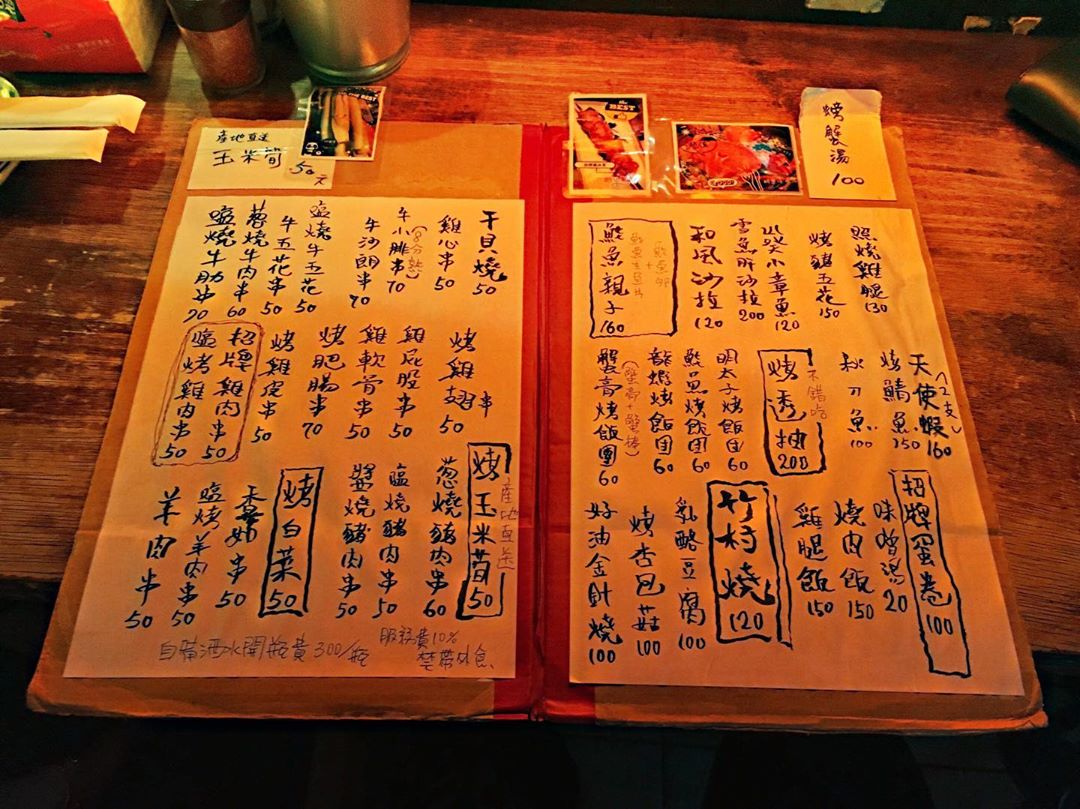 烤蟹湯
100
the BEST
照燒雞腿 130
烤豬五花 150
小章魚 120
雪魚肝沙拉 200
和風沙拉 120
鮭魚卵
+
鮭魚生魚片
鮭魚親子 160
天使蝦(2支) 160
烤鯖魚 150
秋刀魚 100
不錯吃
烤透抽 200
明太子烤飯团 60
鮭魚烤飯团 60
龍蝦烤飯团 60
(蟹膏+蟹棒)
蟹膏烤飯團 60
招牌蛋卷 100
味噌湯 20
燒肉飯 150
雞腿飯 150
竹村燒 120
乳酪豆腐 100
烤杏包菇 100
奶油金針燒 100
產地直送
玉米筍 50元
BEST
干貝燒 50
雞心串 50
牛小排串(8分熟) 70
牛沙朗串 70
鹽燒牛五花
牛五花串 50
蔥燒牛肉串 60
鹽燒牛肋串 70
烤雞翅串 50
雞屁股串 50
雞軟骨串 50
烤肥腸串 70
烤雞皮串 50
招牌雞肉串 50
鹽烤雞肉串 50
產地直送
烤玉米筍 50
蔥燒豬肉串 60
鹽燒豬肉串 50
醬燒豬肉串 50
烤白菜 50
香菇串 50
鹽烤羊肉串 50
羊肉串 50
服務費10%
禁帶外食
自備酒水開瓶費300/瓶